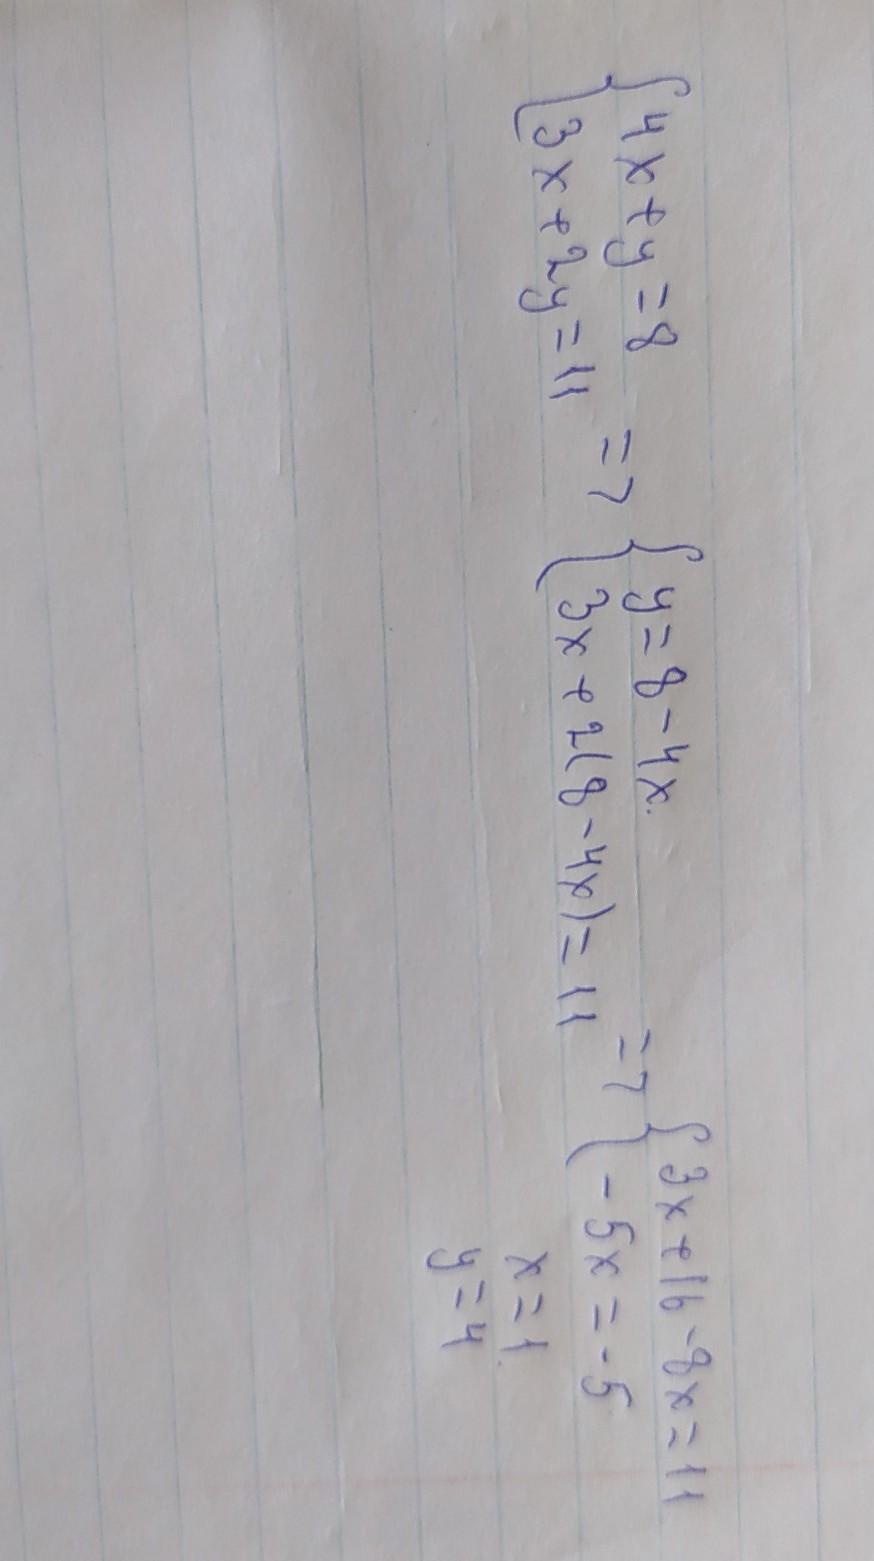 { 4x+y=8
{ 3x+2y=11
=> { y=8-4x.
{ 3x+2(8-4x)=11
=> { 3x+16-8x=11
{ -5x=-5
x=1.
y=4